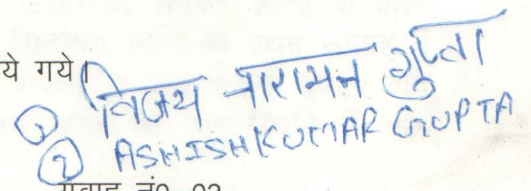 ये गये।
① विजय नारायन गुप्ता
② ASHISH KUMAR GUPTA
गवाह नं0 02